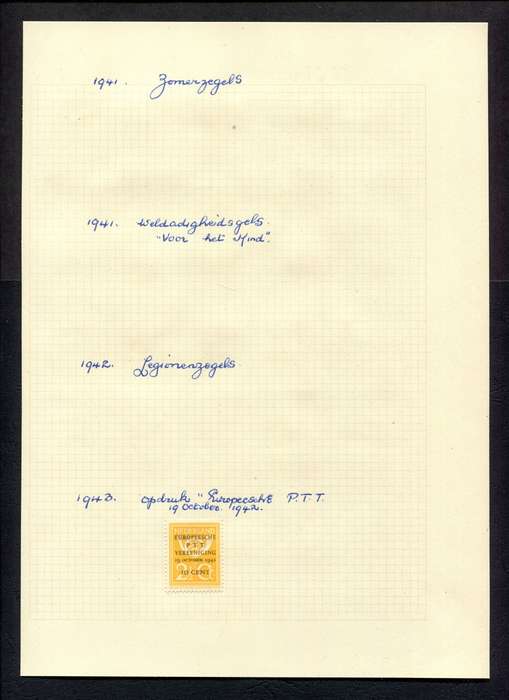 1941. Zomerzegels
1941. Weldadigheidsgels.
"Voor het Kind".
1942. Legioenzegels.
1943. opdruk "Europeesche P.T.T.
19 October 1942.
NEDERLAND
EUROPEESCHE
P T T
VEREENIGING
19 OCTOBER 1942
10 CENT